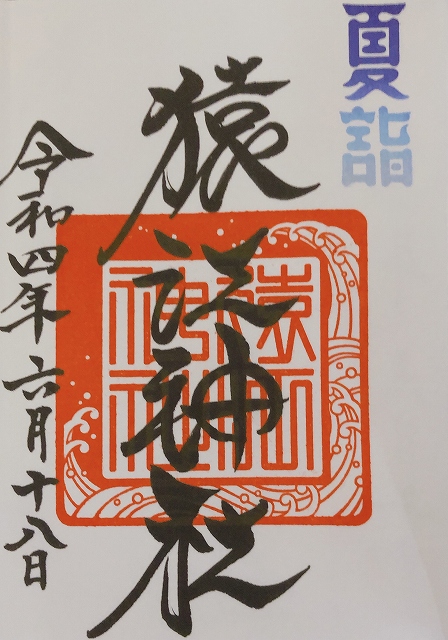 夏詣
猿江神社
猿江
神社
令和四年六月十八日